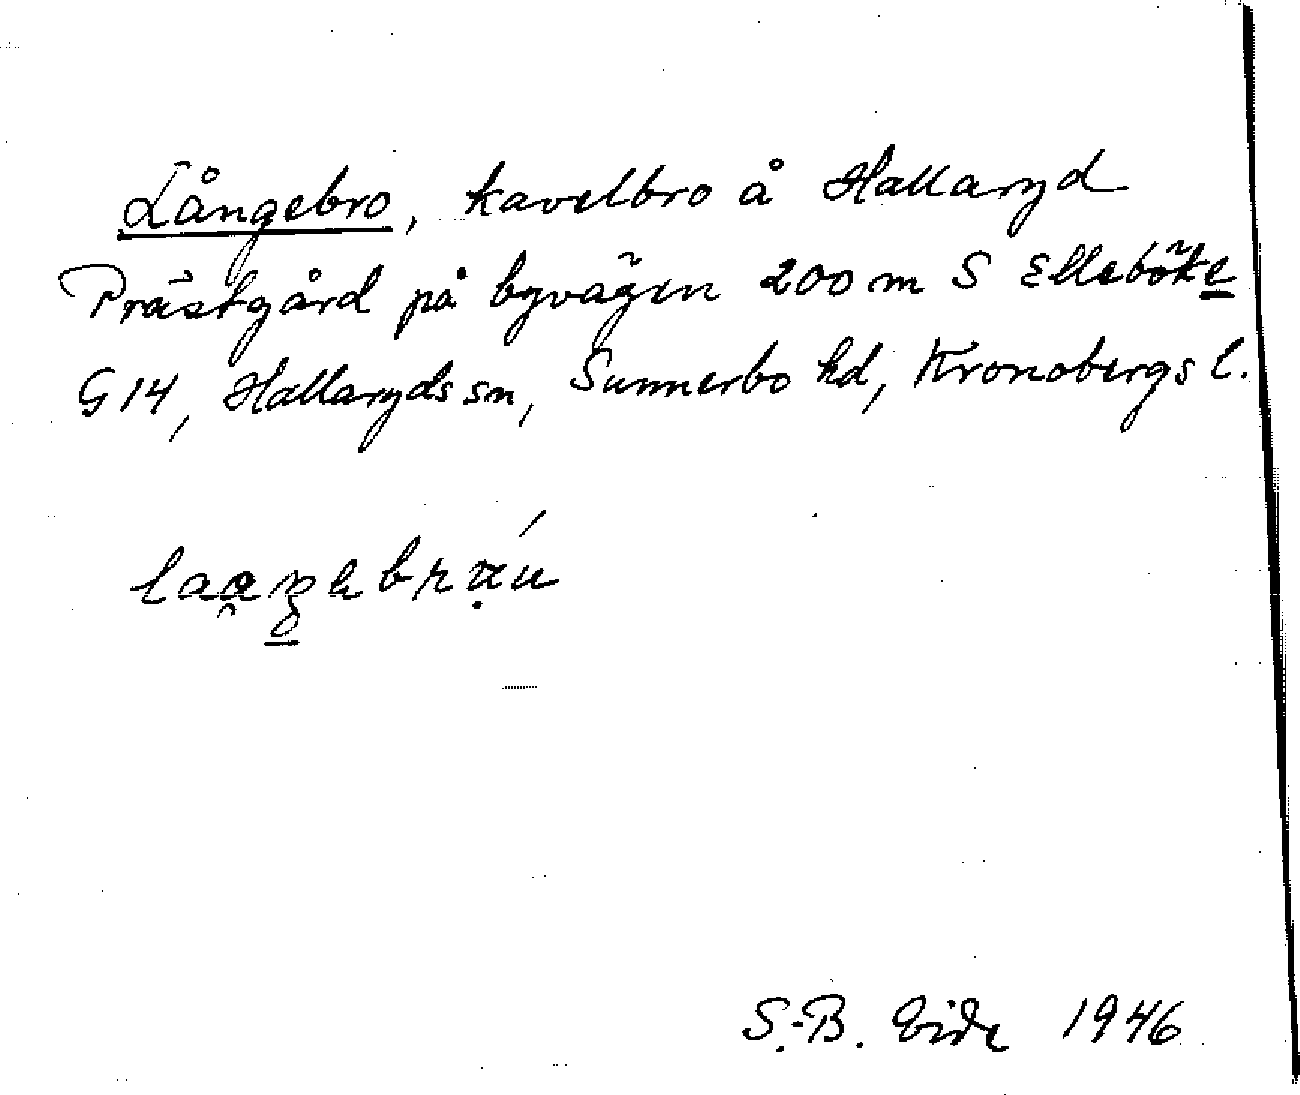 Långebro, kavelbro å Hallaryd
Prästgård på byvägen 200 m S Elleböke
G 14, Hallaryds sn, Sunnerbo hd, Kronobergs l.
S.-B. Eide 1946